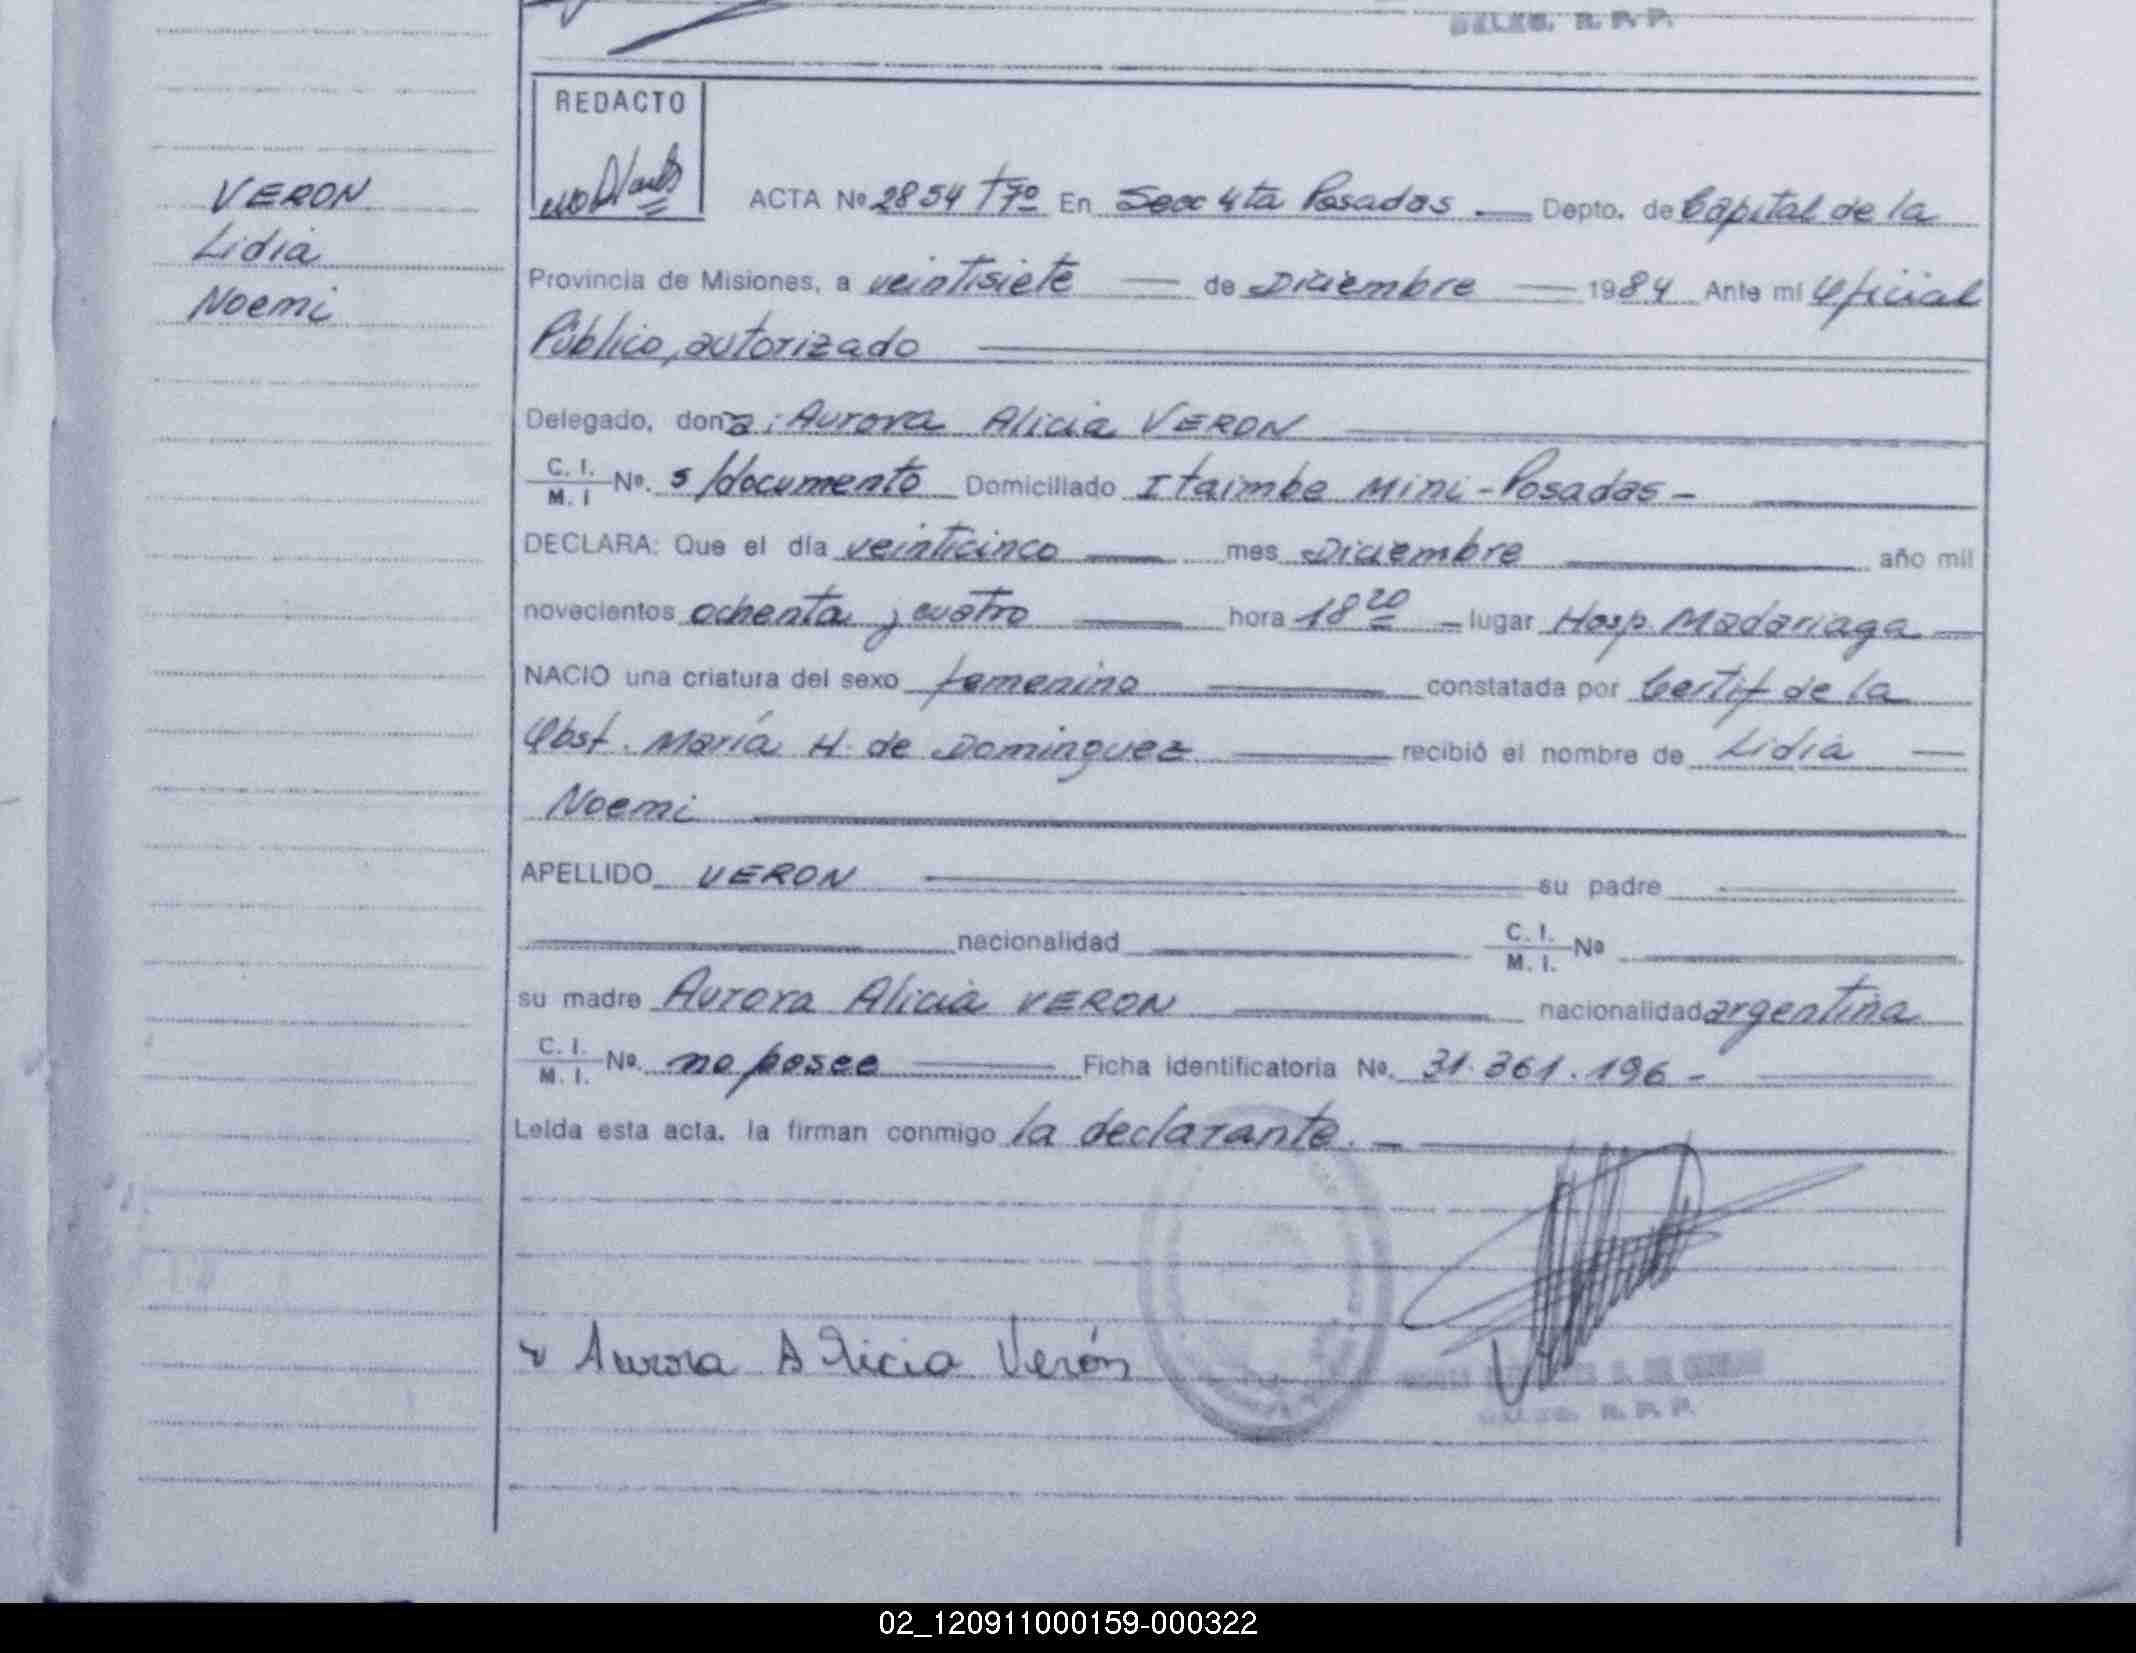 DELEG. R. P. P.
REDACTO
VERON
Lidia
Noemi
ACTA Nº 2854 Tº 7º En Secc 4ta Posadas — Depto. de Capital de la
Provincia de Misiones, a veintisiete — de Diciembre — 1984 Ante mi Oficial
Público, autorizado
Delegado, don a: Aurora Alicia VERON
C. I. / M. I Nº. s/documento Domiciliado Itaimbe Mini - Posadas -
DECLARA: Que el día veinticinco — mes Diciembre — año mil
novecientos ochenta y cuatro — hora 18 20 — lugar Hosp. Madariaga —
NACIO una criatura del sexo femenino — constatada por Certif de la
Obst. María H. de Dominguez — recibió el nombre de Lidia —
Noemi
APELLIDO VERON — su padre
nacionalidad C. I. / M. I. Nº
su madre Aurora Alicia VERON — nacionalidad argentina
C. I. / M. I. Nº. no posee — Ficha identificatoria Nº. 31.361.196 -
Leída esta acta, la firman conmigo la declarante. -
Aurora Alicia Verón
R. P. P.
02_120911000159-000322